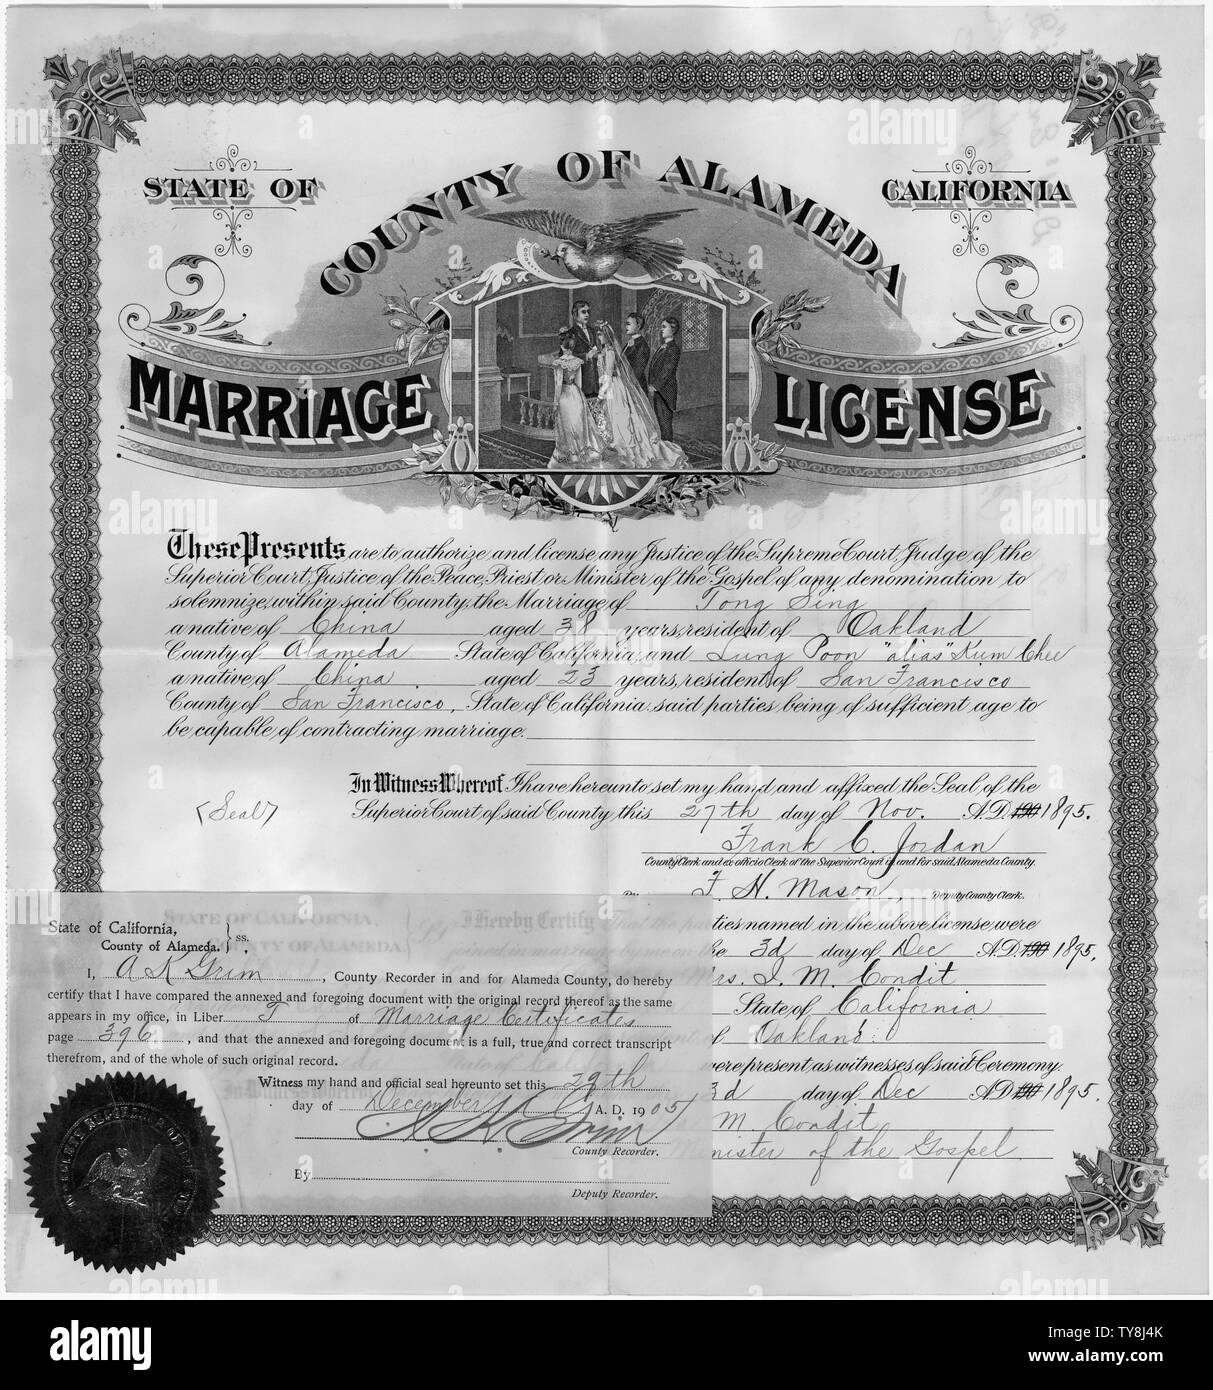 STATE OF
COUNTY OF ALAMEDA
CALIFORNIA
MARRIAGE LICENSE
These Presents, are to authorize and license any Justice of the Supreme Court, Judge of the
Superior Court, Justice of the Peace, Priest or Minister of the Gospel of any denomination to
solemnize, within said County, the Marriage of Tong Sing
a native of China aged 38 years, resident of Oakland
County of Alameda State of California, and Lung Poon "alias" Kum Chee
a native of China aged 23 years, resident of San Francisco
County of San Francisco, State of California said parties being of sufficient age to
be capable of contracting marriage.
In Witness Whereof I have hereunto set my hand and affixed the Seal of the
<Seal>
Superior Court of said County this 27th day of Nov. A.D. 190 1895.
Frank C. Jordan
County Clerk and ex officio Clerk of the Superior Court in and for said Alameda County.
F. N. Mason, Deputy County Clerk.
STATE OF CALIFORNIA,
COUNTY OF ALAMEDA
I Hereby Certify That the parties named in the above license were
joined in marriage by me on the 3d day of Dec A.D. 190 1895.
Mrs. I. M. Condit
State of California
of Oakland
were present as witnesses of said Ceremony.
3d day of Dec A.D. 190 1895.
M. Condit
Minister of the Gospel
State of California,
County of Alameda. } ss.
I, A K Grim, County Recorder in and for Alameda County, do hereby
certify that I have compared the annexed and foregoing document with the original record thereof as the same
appears in my office, in Liber T of Marriage Certificates
page 396, and that the annexed and foregoing document is a full, true and correct transcript
therefrom, and of the whole of such original record.
Witness my hand and official seal hereunto set this 29th
day of December A. D. 1905
A. K. Grim
County Recorder.
By
Deputy Recorder.
alamy
Image ID: TY8J4K
www.alamy.com